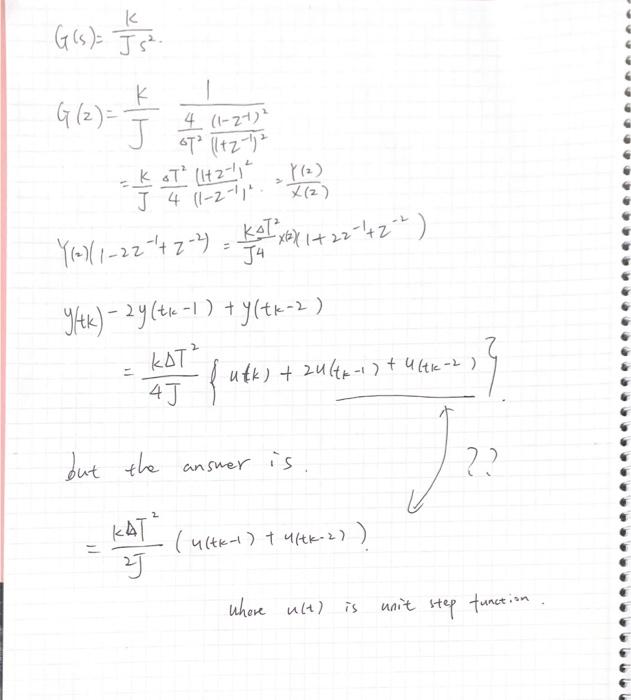 G(s) = k / Js².
G(z) = k/J 1 / (4/ΔT² (1-z⁻¹)²/(1+z⁻¹)²)
= k/J ΔT²/4 (1+z⁻¹)²/(1-z⁻¹)². = Y(z)/X(z)
Y(z)(1-2z⁻¹+z⁻²) = kΔT²/J4 X(z)(1+2z⁻¹+z⁻²)
y(tk) - 2y(tk-1) + y(tk-2)
= kΔT²/4J { u(tk) + 2u(tk-1) + u(tk-2) }.
but the answer is. ??
= kΔT²/2J (u(tk-1) + u(tk-2)).
where u(t) is unit step function.